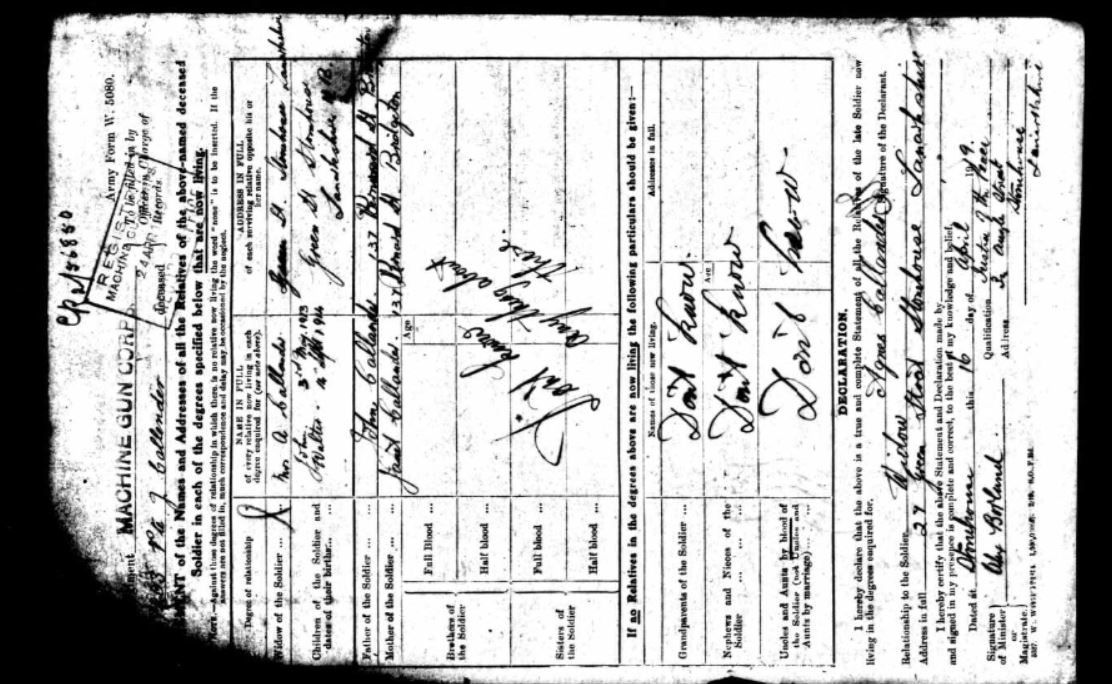 C/2/36850
Army Form W. 5080.
REGIS
MACHINE G
24 APR
To be filled in by
Officer in Charge of
Records
MACHINE GUN CORPS.
Pte J Callander deceased
of the Names and Addresses of all the Relatives of the above-named deceased
Soldier in each of the degrees specified below that are now living.
NOTE.—Against those degrees of relationship in which there is no relative now living the word "none" is to be inserted. If the
answers are not filled in, much correspondence and delay may be occasioned by the neglect.
Degree of relationship
every NAME IN FULL
of relative now living in each
degree enquired for (see note above).
ADDRESS IN FULL
of each surviving relative opposite his or
her name.
Widow of the Soldier ... Mrs A Callander Green St. Stonehouse Lanarkshire
Children of the Soldier and
dates of their births ...
John. 3rd May 1913
Walter. 4 Sept 1914
Green St Stonehouse
Lanarkshire N.B.
Father of the Soldier ... John Callander 137 Bernard St Bridgeton
Mother of the Soldier ... Janet Callander 137 Bernard St Bridgeton
Age
Brothers of
the Soldier
Full Blood ...
Half blood ...
Sisters of
the Soldier
Full blood ...
Half blood ...
Don't know
anything about
there
If no Relatives in the degrees above are now living the following particulars should be given:—
Names of those now living.
Age
Addresses in full.
Grandparents of the Soldier ... Don't know.
Nephews and Nieces of the
Soldier ... Don't know
Uncles and Aunts by blood of
the Soldier (not Uncles and
Aunts by marriage) ... Don't know
DECLARATION.
I hereby declare that the above is a true and complete Statement of all the Relatives of the late Soldier now
living in the degrees enquired for.
Agnes Callander Signature of the Declarant.
Relationship to the Soldier Widow
Address in full 27 Green Street Stonehouse Lanarkshire
I hereby certify that the above Statement and Declaration made by
and signed in my presence is complete and correct, to the best of my knowledge and belief.
Dated at Stonehouse this 16 day of April 1919.
Signature
of Minister
or
Magistrate.
Alex Borland
Qualification Justice of the Peace
Address
Street
Stonehouse
Lanarkshire